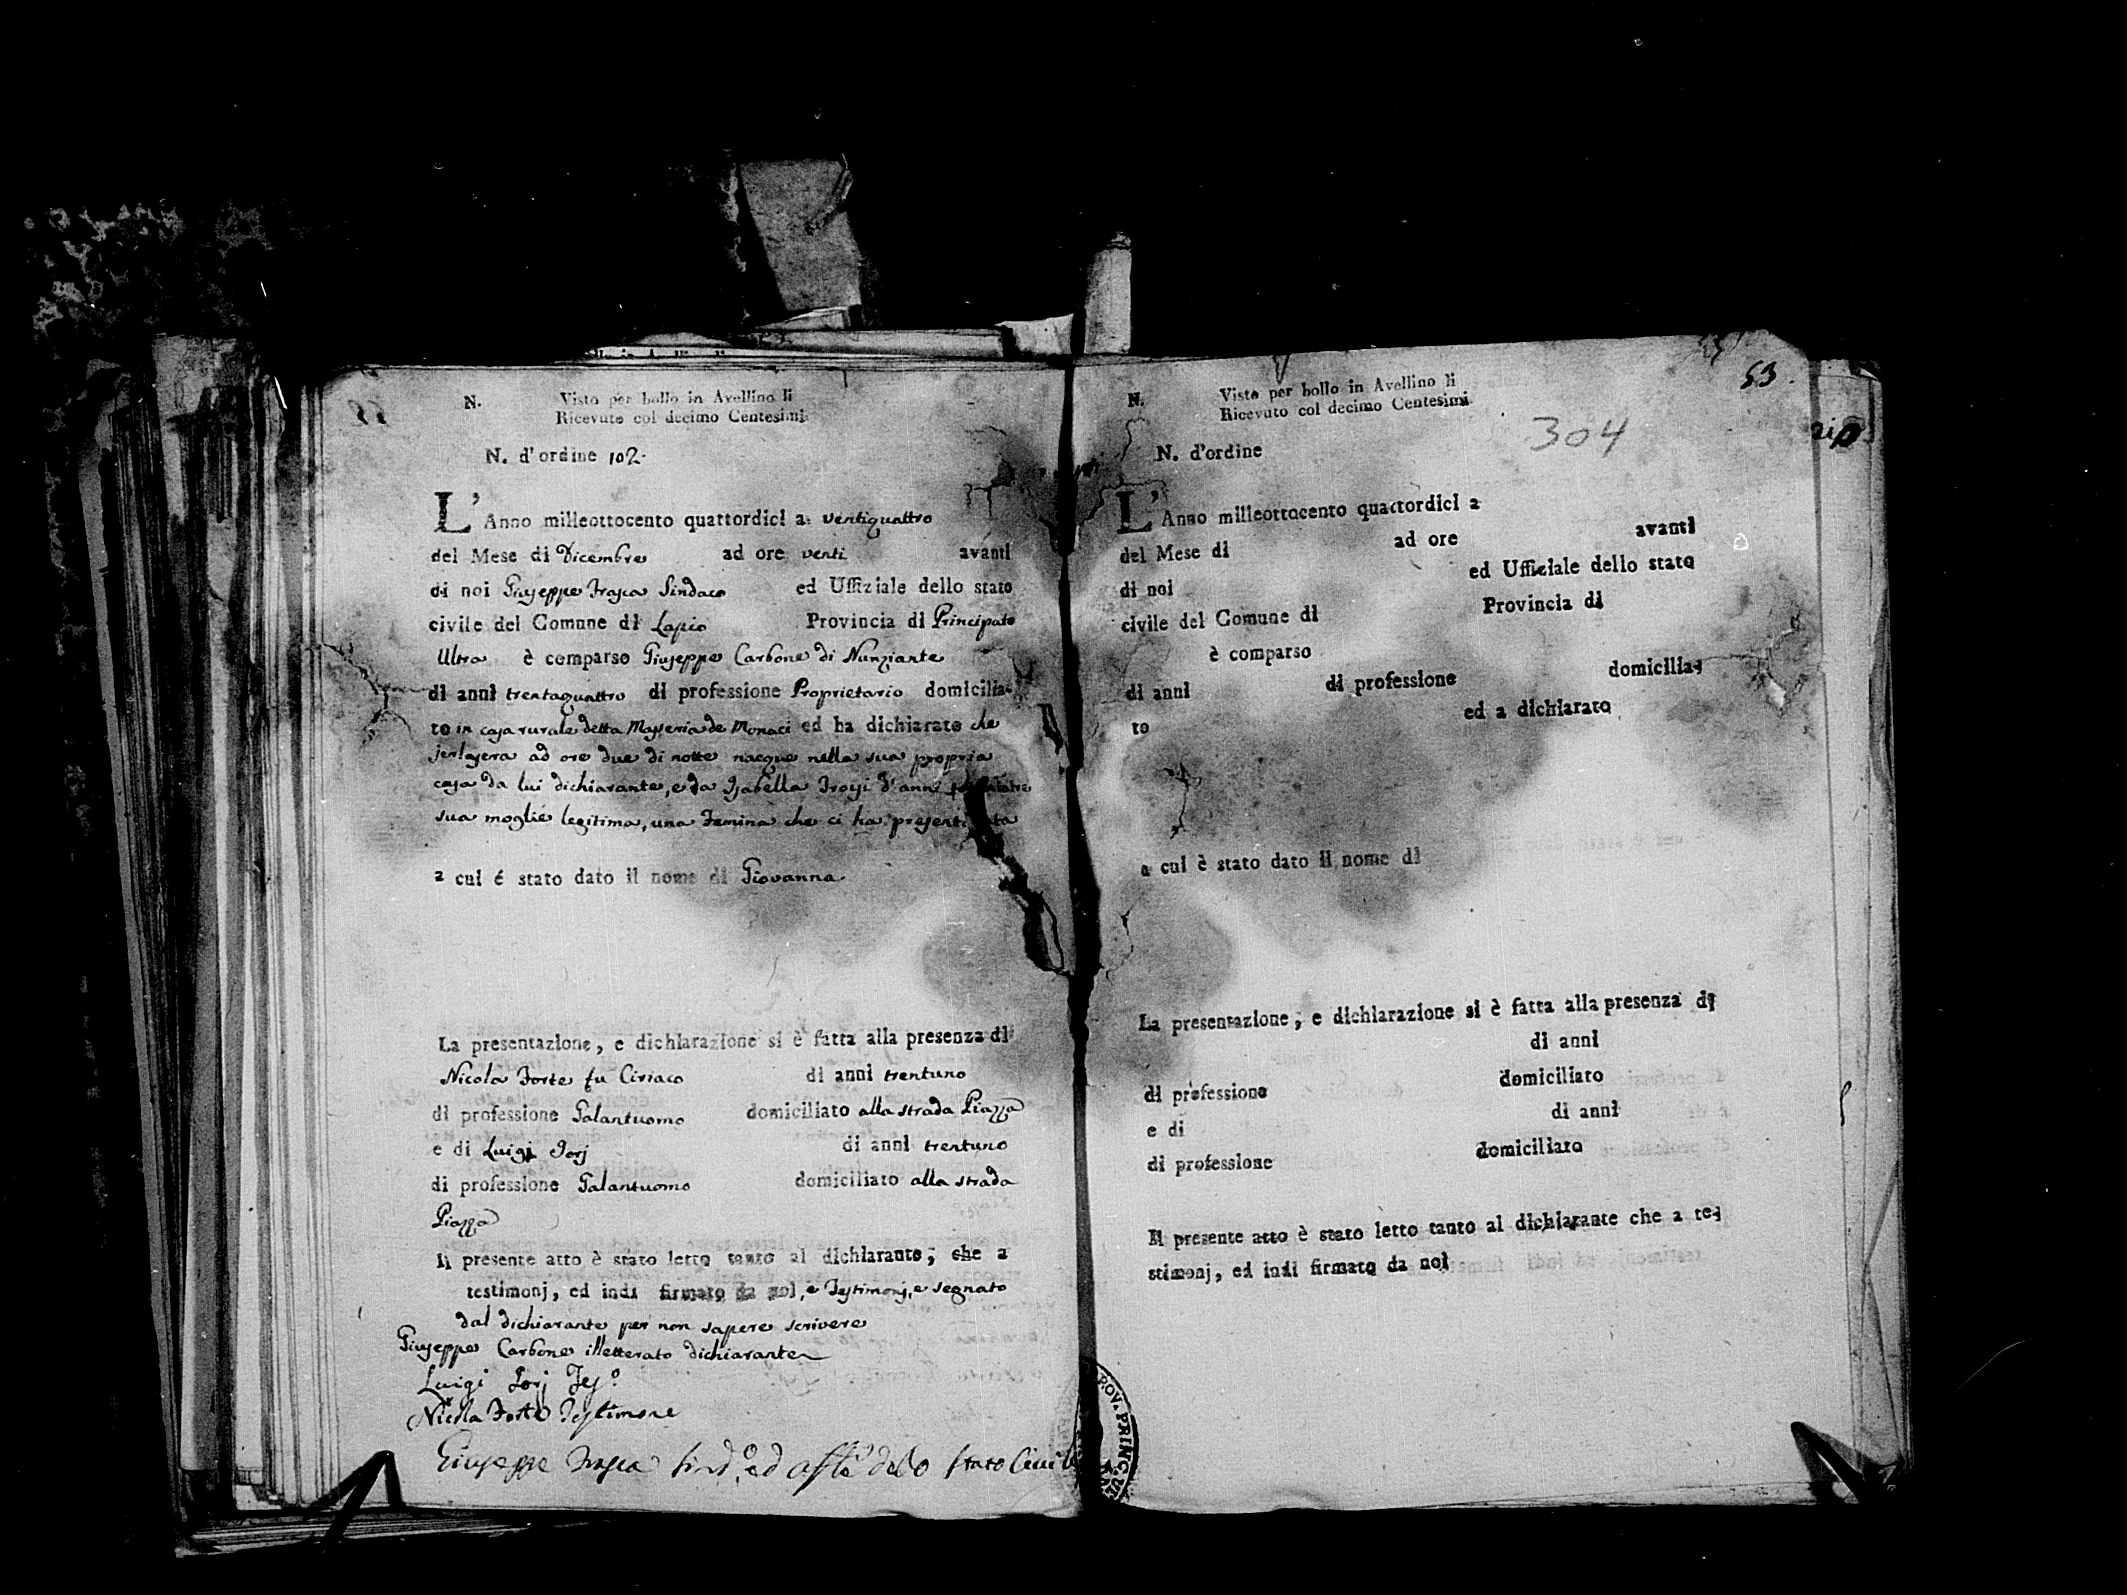 N. Visto per bollo in Avellino li
Ricevuto col decimo Centesimi
N. d'ordine 102.
L'Anno milleottocento quattordici a ventiquattro
del Mese di Dicembre ad ore venti avanti
di noi Giuseppe Frasca Sindaco ed Uffiziale dello stato
civile del Comune di Lapio Provincia di Principato
Ultra è comparso Giuseppe Carbone di Nunziante
di anni trentaquattro di professione Proprietario domicilia-
to in casa rurale detta Masseria de Monaci ed ha dichiarato che
jerlasera ad ore due di notte nacque nella sua propria
casa da lui dichiarante, e da Isabella Troisi d'anni
sua moglie legitima, una Femina che ci ha presentata
a cui é stato dato il nome di Giovanna
La presentazione, e dichiarazione si è fatta alla presenza di
Nicola Forte fu Ciriaco di anni trentuno
di professione Galantuomo domiciliato alla strada Piazza
e di Luigi di anni trentuno
di professione Galantuomo domiciliato alla strada
Piazza
Il presente atto è stato letto tanto al dichiarante, che a
testimonj, ed indi firmato da noi, e Testimonj, e segnato
dal dichiarante per non sapere scrivere
Giuseppe Carbone illetterato dichiarante
Luigi
Nicola Forte Testimone
Giuseppe Frasca Sind.o ed dello Stato Civile
53.
N. Visto per bollo in Avellino li
Ricevuto col decimo Centesimi
304
N. d'ordine
L'Anno milleottocento quattordici a
del Mese di ad ore avanti
di noi ed Uffiziale dello stato
civile del Comune di Provincia di
è comparso
di anni di professione domicilia-
to ed a dichiarato
a cui è stato dato il nome di
La presentazione, e dichiarazione si è fatta alla presenza di
di anni
di professione domiciliato
e di di anni
di professione domiciliato
Il presente atto è stato letto tanto al dichiarante che a te-
stimonj, ed indi firmato da noi
PROV. PRINC. U